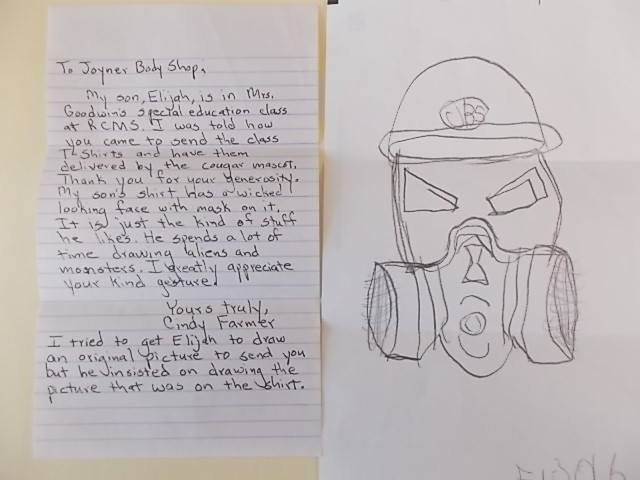 To Joyner Body Shop,
My son, Elijah, is in Mrs.
Goodwin's special education class
at RCMS. I was told how
you came to send the class
T-Shirts and have them
delivered by the cougar mascot.
Thank you for your generosity.
My son's shirt has a wicked
looking face with mask on it.
It is just the kind of stuff
he likes. He spends a lot of
time drawing aliens and
monsters. I greatly appreciate
your kind gesture.
Yours truly,
Cindy Farmer
I tried to get Elijah to draw
an original picture to send you
but he insisted on drawing the
picture that was on the shirt.
JBS